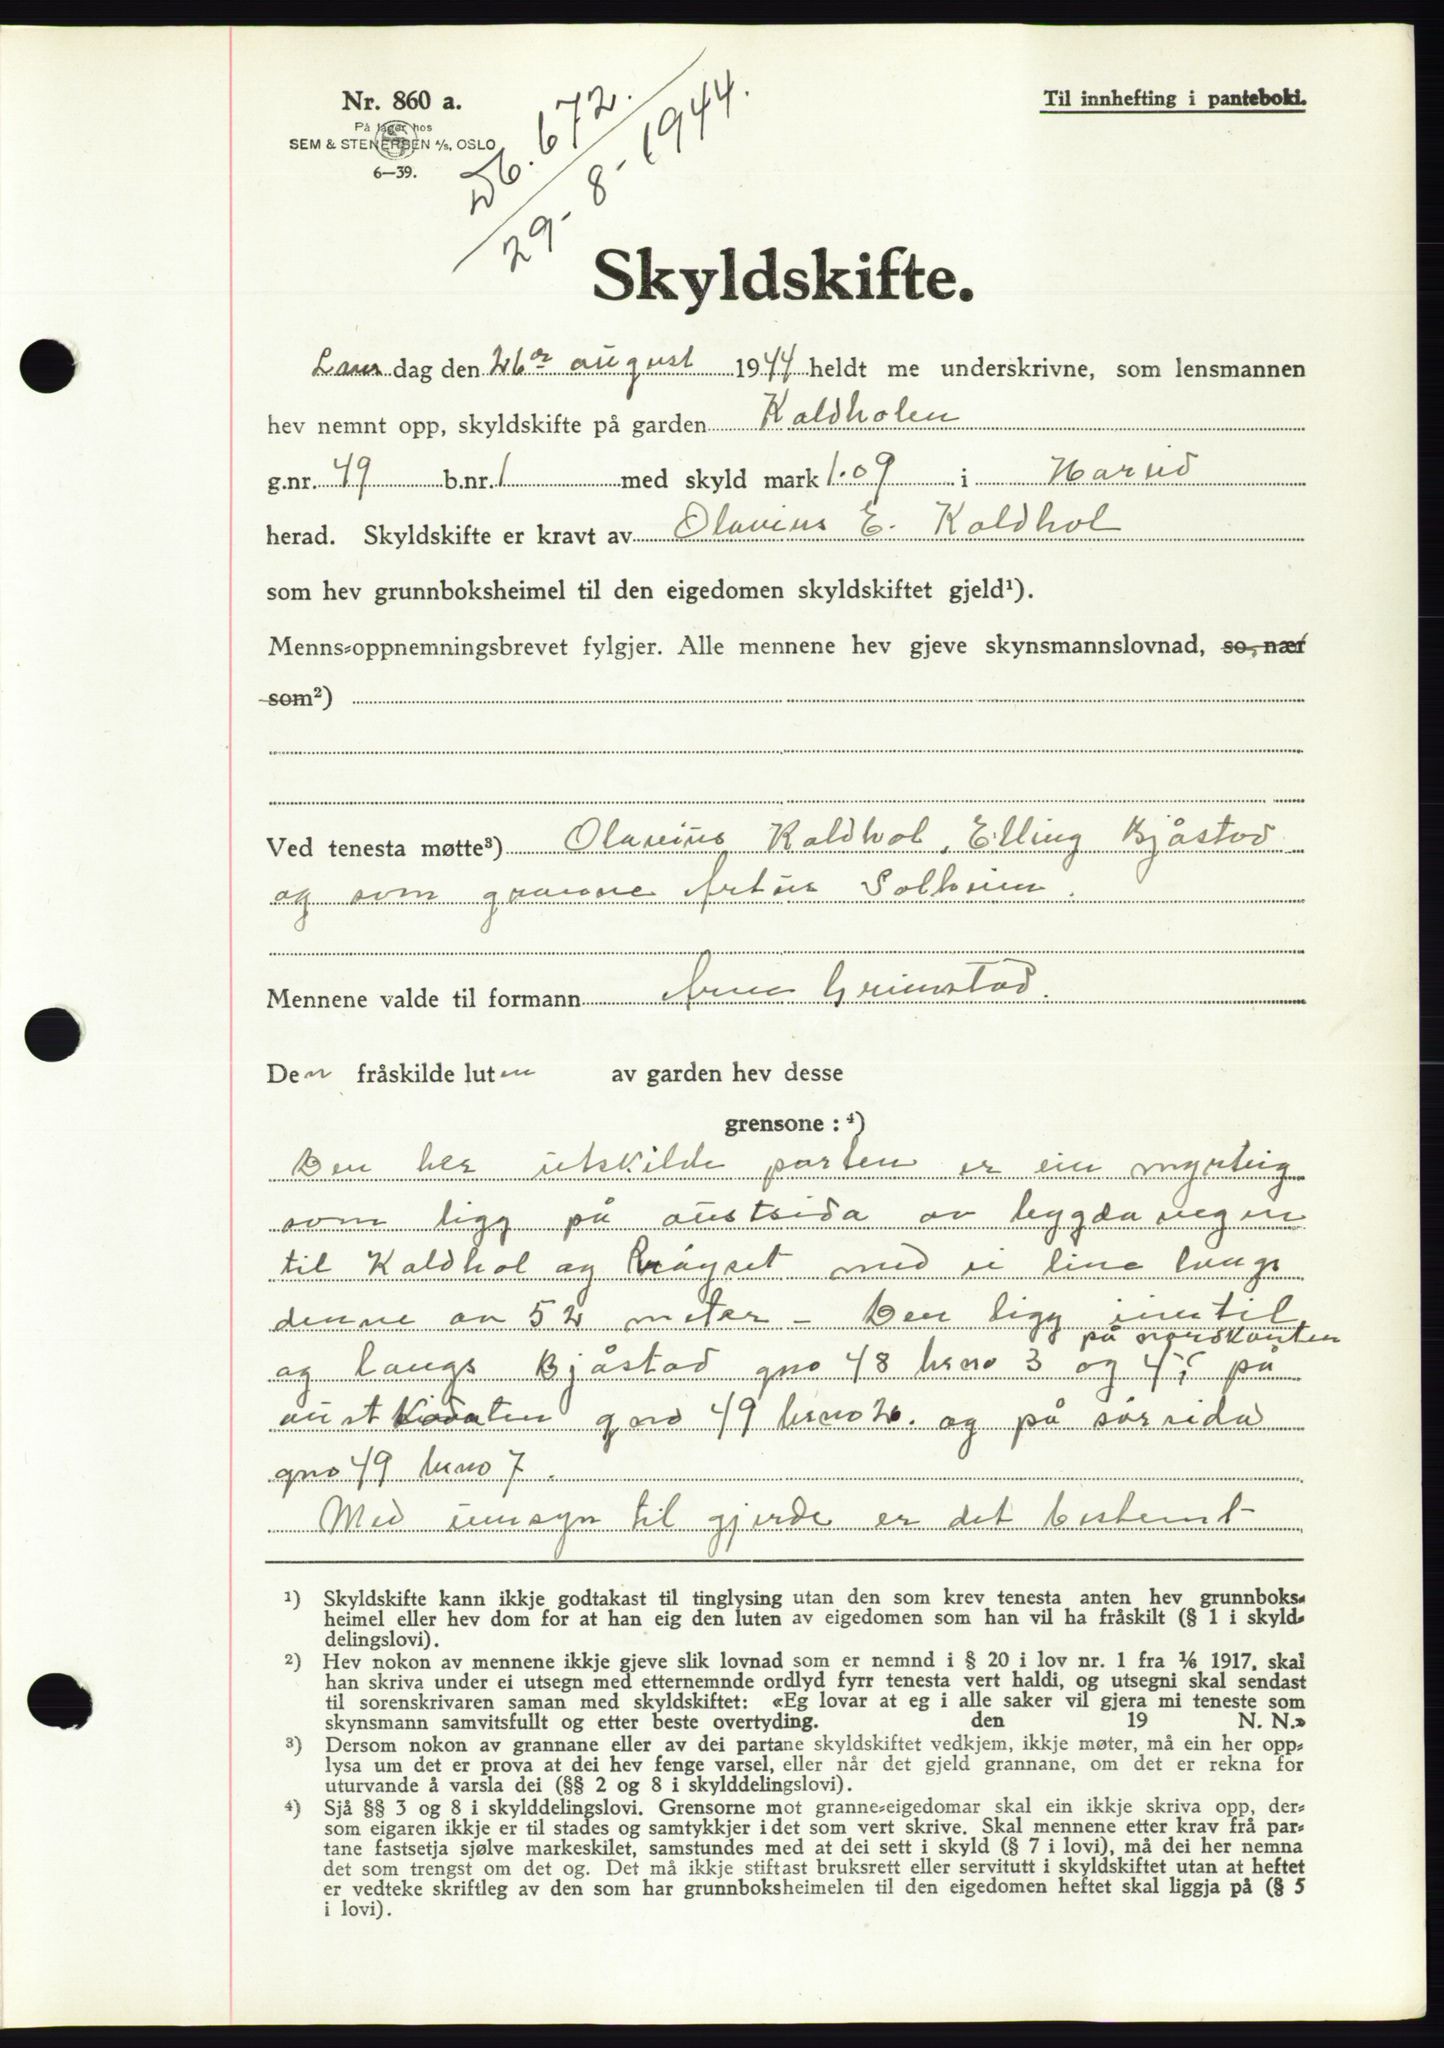 Nr. 860 a.
På lager hos
SEM & STENERSEN A/S, OSLO
6—39.
Db. 672.
29-8-1944.
Til innhefting i panteboki.
Skyldskifte.
Laurdag den 26de august 1944 heldt me underskrivne, som lensmannen
hev nemnt opp, skyldskifte på garden Kaldholen
g.nr. 49 b.nr. 1 med skyld mark 1.09 i Hareid
herad. Skyldskifte er kravt av Olavius E. Kaldhol
som hev grunnboksheimel til den eigedomen skyldskiftet gjeld¹).
Menns-oppnemningsbrevet fylgjer. Alle mennene hev gjeve skynsmannslovnad, so nær
som²)
Ved tenesta møtte³) Olavius Kaldhol, Elling Bjåstad
og som granne Artur Solheim.
Mennene valde til formann Arne Grimstad.
Den fråskilde luten av garden hev desse
grensone :⁴)
Den her utskilde parten er ein myrteig
som ligg på austsida av bygdavegen
til Kaldhol og Røyset med ei line langs
denne av 52 meter – Den ligg inntil
og langs Bjåstad gno 48 brno 3 og 4 på nordkanten; på
austkanten gno 49 brno 2. og på sørsida
gno 49 brno 7.
Med umsyn til gjerde er det bestemt
¹) Skyldskifte kann ikkje godtakast til tinglysing utan den som krev tenesta anten hev grunnboks-
heimel eller hev dom for at han eig den luten av eigedomen som han vil ha fråskilt (§ 1 i skyld-
delingslovi).
²) Hev nokon av mennene ikkje gjeve slik lovnad som er nemnd i § 20 i lov nr. 1 fra 1/6 1917, skal
han skriva under ei utsegn med etternemnde ordlyd fyrr tenesta vert haldi, og utsegni skal sendast
til sorenskrivaren saman med skyldskiftet: «Eg lovar at eg i alle saker vil gjera mi teneste som
skynsmann samvitsfullt og etter beste overtyding. den 19 N. N.»
³) Dersom nokon av grannane eller av dei partane skyldskiftet vedkjem, ikkje møter, må ein her opp-
lysa um det er prova at dei hev fenge varsel, eller når det gjeld grannane, om det er rekna for
uturvande å varsla dei (§§ 2 og 8 i skylddelingslovi).
⁴) Sjå §§ 3 og 8 i skylddelingslovi. Grensorne mot granne-eigedomar skal ein ikkje skriva opp, der-
som eigaren ikkje er til stades og samtykkjer i det som vert skrive. Skal mennene etter krav frå par-
tane fastsetja sjølve markeskilet, samstundes med at dei sett i skyld (§ 7 i lovi), må dei her nemna
det som trengst om det og. Det må ikkje stiftast bruksrett eller servitutt i skyldskiftet utan at heftet
er vedteke skriftleg av den som har grunnboksheimelen til den eigedomen heftet skal liggja på (§ 5
i lovi).